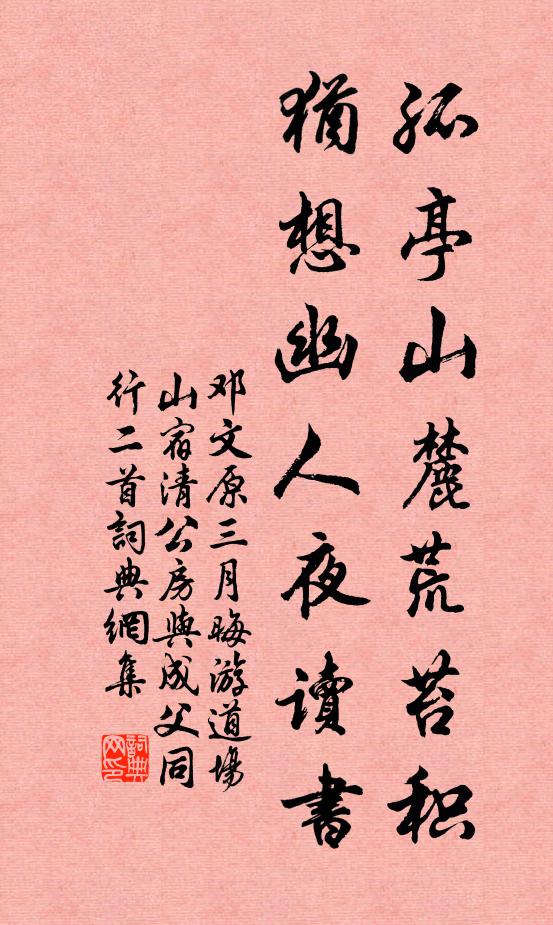 孤亭山麓荒苔积
猶想幽人夜讀書
邓文原三月晦游道場
山宿清公房與成父同
行二首詞典網集
詞典网印